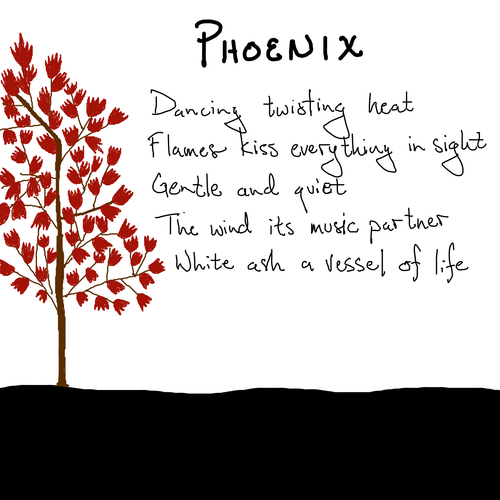 PHOENIX
Dancing twisting heat
Flames kiss everything in sight
Gentle and quiet
The wind its music partner
White ash a vessel of life